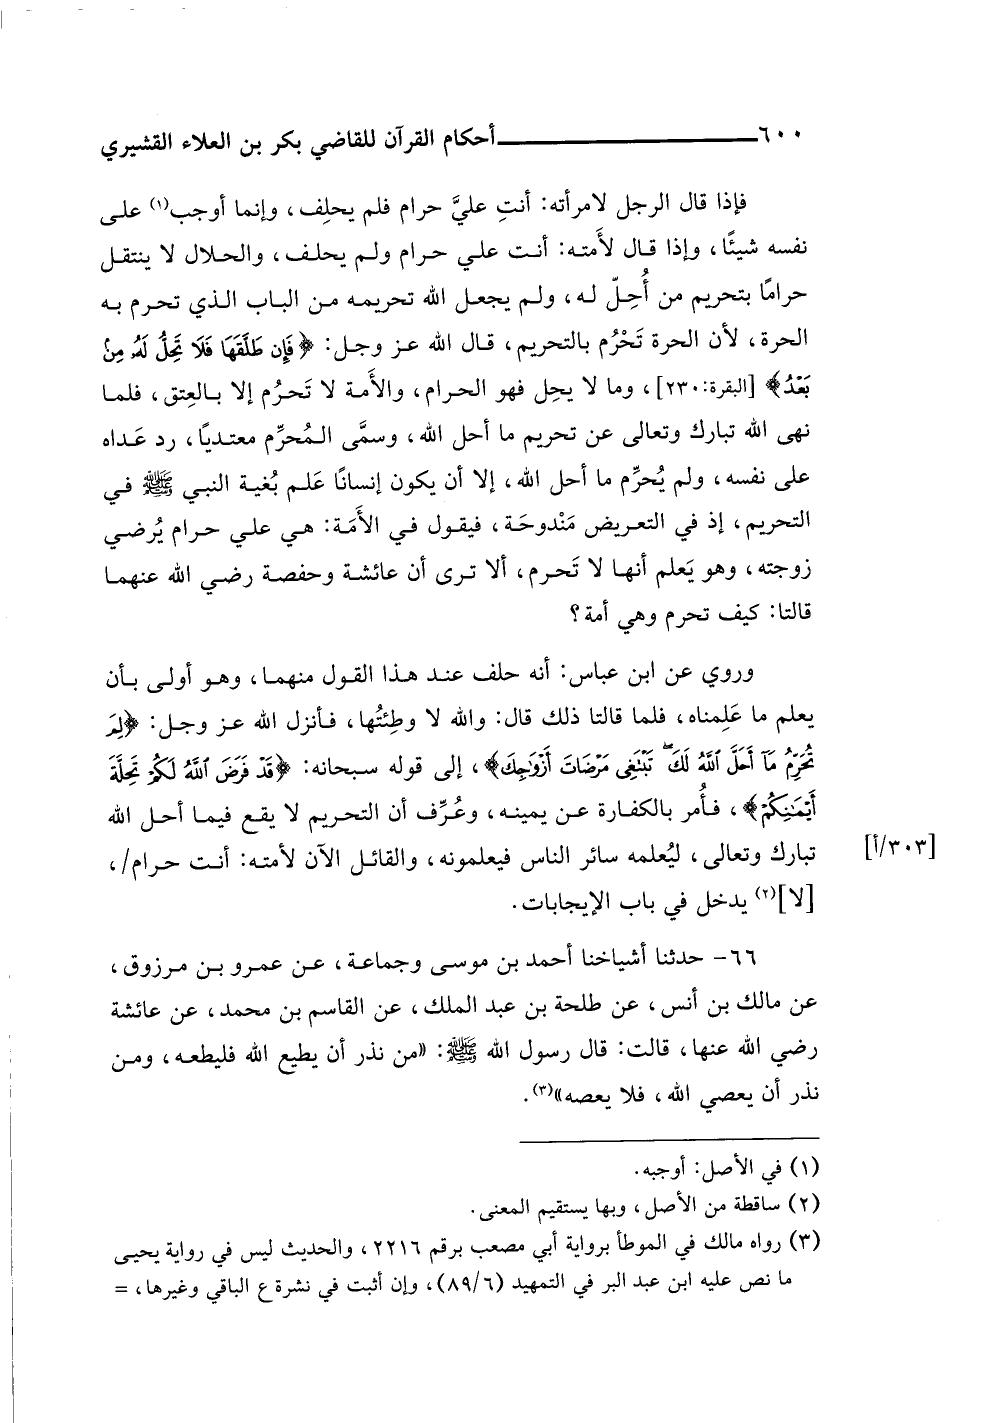 ٦٠٠ أحكام القرآن للقاضي بكر بن العلاء القشيري
فإذا قال الرجل لامرأته: أنتِ عليَّ حرام فلم يحلِف، وإنما أوجب(١) على
نفسه شيئًا، وإذا قال لأَمته: أنت علي حرام ولم يحلف، والحلال لا ينتقل
حرامًا بتحريم من أُحِلّ له، ولم يجعل الله تحريمه من الباب الذي تحرم به
الحرة، لأن الحرة تَحْرُم بالتحريم، قال الله عز وجل: ﴿فَإِن طَلَّقَهَا فَلَا تَحِلُّ لَهُۥ مِنۢ
بَعْدُ﴾ [البقرة: ٢٣٠]، وما لا يحِل فهو الحرام، والأَمة لا تَحرُم إلا بالعِتق، فلما
نهى الله تبارك وتعالى عن تحريم ما أحل الله، وسمَّى المُحرِّم معتديًا، رد عَداه
على نفسه، ولم يُحرِّم ما أحل الله، إلا أن يكون إنسانًا عَلم بُغية النبي ﷺ في
التحريم، إذ في التعريض مَنْدوحَة، فيقول في الأمَة: هي علي حرام يُرضي
زوجته، وهو يَعلم أنها لا تَحرم، ألا ترى أن عائشة وحفصة رضي الله عنهما
قالتا: كيف تحرم وهي أمة؟
وروي عن ابن عباس: أنه حلف عند هذا القول منهما، وهو أولى بأن
يعلم ما عَلِمناه، فلما قالتا ذلك قال: والله لا وطِئتُها، فأنزل الله عز وجل: ﴿لِمَ
تُحَرِّمُ مَآ أَحَلَّ ٱللَّهُ لَكَۖ تَبْتَغِى مَرْضَاتَ أَزْوَٰجِكَ﴾، إلى قوله سبحانه: ﴿قَدْ فَرَضَ ٱللَّهُ لَكُمْ تَحِلَّةَ
أَيْمَٰنِكُمْ﴾، فأُمر بالكفارة عن يمينه، وعُرِّف أن التحريم لا يقع فيما أحل الله
تبارك وتعالى، ليُعلمه سائر الناس فيعلمونه، والقائل الآن لأمته: أنت حرام/، [٣٠٣/أ]
[لا](٢) يدخل في باب الإيجابات.
٦٦- حدثنا أشياخنا أحمد بن موسى وجماعة، عن عمرو بن مرزوق،
عن مالك بن أنس، عن طلحة بن عبد الملك، عن القاسم بن محمد، عن عائشة
رضي الله عنها، قالت: قال رسول الله ﷺ: «من نذر أن يطيع الله فليطعه، ومن
نذر أن يعصي الله، فلا يعصه»(٣).
(١) في الأصل: أوجبه.
(٢) ساقطة من الأصل، وبها يستقيم المعنى.
(٣) رواه مالك في الموطأ برواية أبي مصعب برقم ٢٢١٦، والحديث ليس في رواية يحيى
ما نص عليه ابن عبد البر في التمهيد (٦/ ٨٩)، وإن أثبت في نشرة ع الباقي وغيرها، =